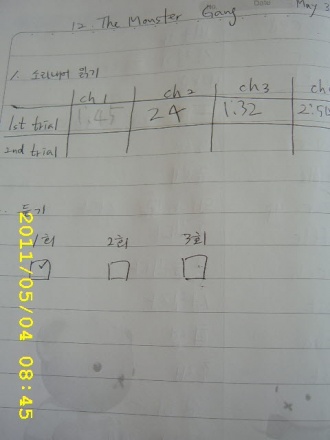 12 The Monster Gang Date May 3
1. 소리내어 읽기
ch 1 ch 2 ch 3 ch
1st trial 1.45 24 1.32 2:50
2nd trial
듣기
1회 2회 3회
2011/05/04 08:45